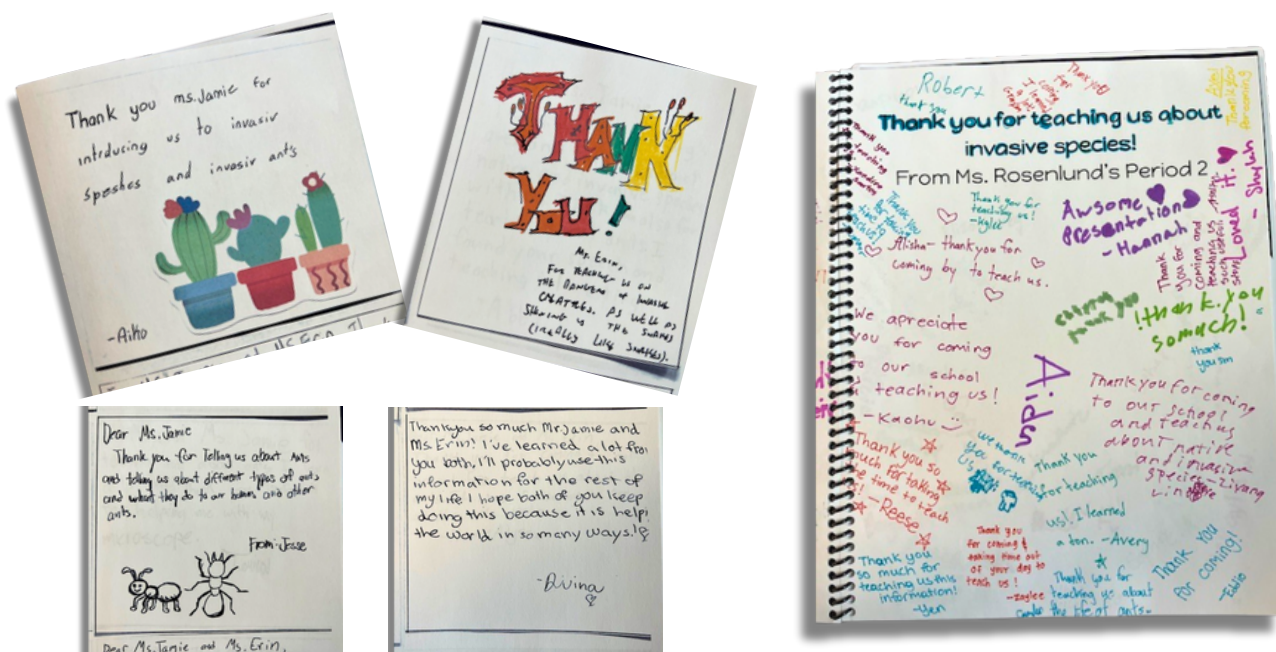 Thank you ms. Jamie for
intrducing us to invasiv
speshes and invasiv ants
-Aiko
THANK
YOU!
Ms. Erin,
FOR TEACHING US ON
THE DANGERS OF INVASIVE
CREATURES. AS WELL AS
SHOWING US THE
(I REALLY LIKE
Dear Ms. Jamie
Thank you for Telling us about Ants
and telling us about different types of ants
and what they do to our and other
ants.
From: Jesse
Dear Ms. Jamie and Ms. Erin,
Thankyou so much Mr. Jamie and
Ms. Erin! I've learned a lot from
you both, I'll probably use this
information for the rest of
my life I hope both of you keep
doing this because it is helpi
the world in so many ways!
-Divina
Robert
thank you
Thank you for teaching us about
invasive species!
From Ms. Rosenlund's Period 2
Thank you for
teaching us!
-Kylee
Awsome
Presentation
- Hannah
Loved it. - Shylah
Alisha- thank you for
coming by to teach us.
Thank
you for
coming and
teaching us
such useful
!thank you
somuch!
thank
you sm
We apreciate
you for coming
to our school
teaching us!
-Kaohu
Aiden
Thank you for coming
to our school
and teach us
about native
and invasive
species-
Thank you so
much for taking
the time to teach
-Reese
Thank you
for teaching
us! I learned
a ton. -Avery
Thank you
for coming &
taking time out
of your day to
teach us!
-zaylee
Thank you
so much for
teaching us this
information!
-Yen
Thank you for
teaching us about
the life of ants-
Thank you
for coming!